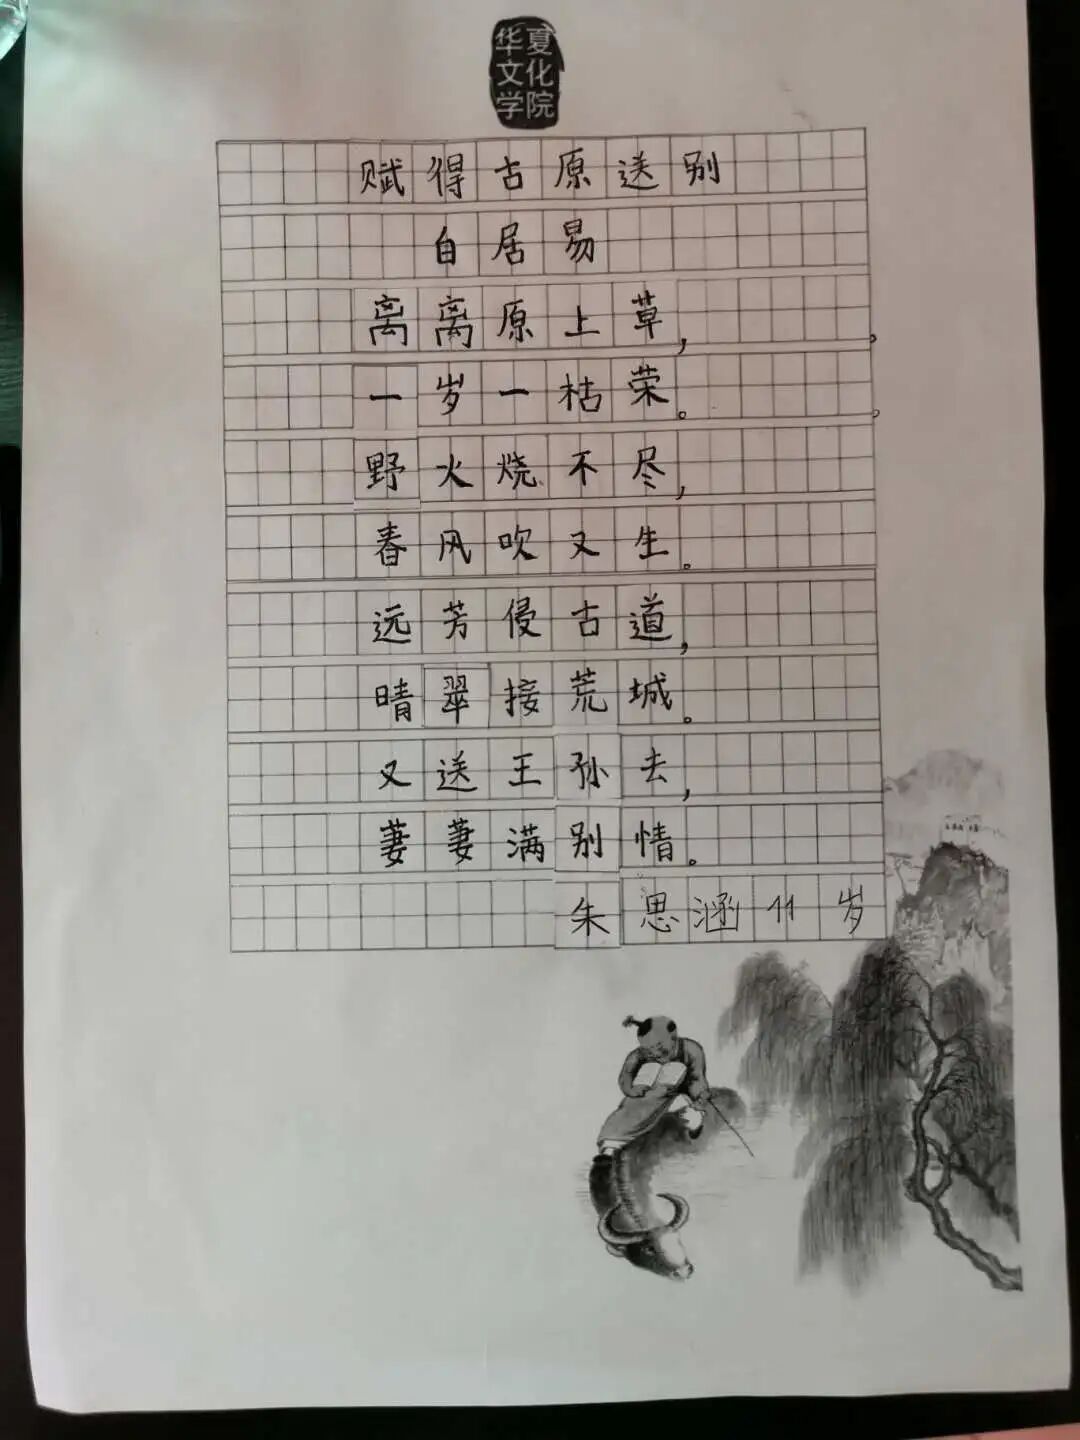 华夏
文化
学院
赋得古原送别
白居易
离离原上草，
一岁一枯荣。
野火烧不尽，
春风吹又生。
远芳侵古道，
晴翠接荒城。
又送王孙去，
萋萋满别情。
朱思涵11岁